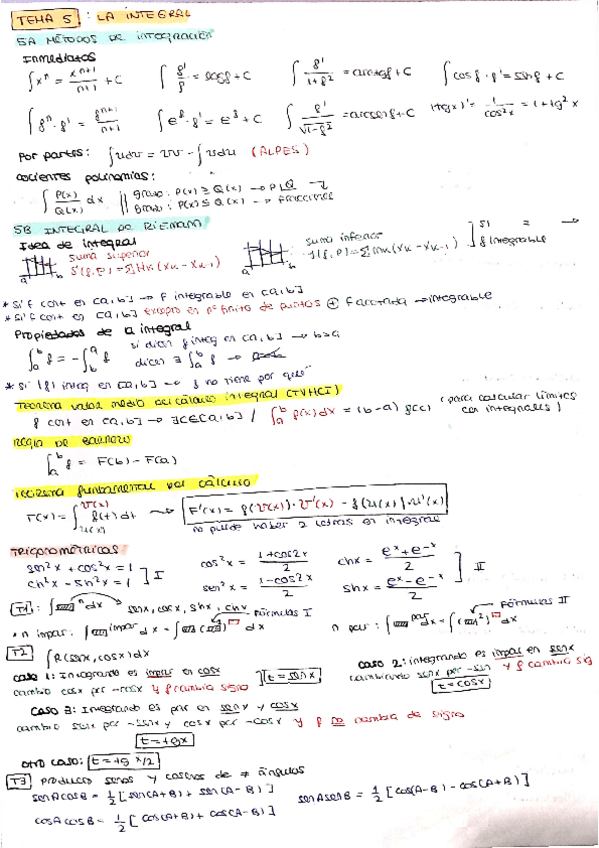 TEMA 5 : LA INTEGRAL
5A MÉTODOS DE INTEGRACIÓN
Inmediatos
∫xⁿ = xⁿ⁺¹/n+1 + C   ∫ f'/f = log f + C   ∫ f'/1+f² = arctg f + C   ∫cos f · f' = sen f + C
∫fⁿ · f' = fⁿ⁺¹/n+1   ∫e^f · f' = e^f + C   ∫ f'/√1-f² = arcsen f + C   (tgx)' = 1/cos²x = 1+tg²x
Por partes: ∫u dv = uv - ∫v du (ALPES)
Cocientes polinomios:
∫ P(x)/Q(x) dx   grado: P(x) ≥ Q(x) → P Q
grado: P(x) ≤ Q(x) → fracciones
5B INTEGRAL DE RIEMANN
Idea de integral
suma superior   suma inferior
S(f,P) = Σ Mk (xk - xk-1)   s(f,P) = Σ mk (xk - xk-1)   si = → f integrable
a b   a b
* Si f cont en [a,b] → f integrable en [a,b]
* Si f cont en [a,b] excepto en nº finito de puntos ⊕ f acotada → integrable
Propiedades de la integral
∫ₐᵇ f = -∫_bᵃ f   si dicen f integ en [a,b] → b>a
dicen ∃ ∫ₐᵇ f →
* Si |f| integ en [a,b] → f no tiene por qué
Teorema valor medio del cálculo integral (TVMCI)
f cont en [a,b] → ∃c∈[a,b] / ∫ₐᵇ f(x)dx = (b-a) f(c) (para calcular límites con integrales)
REGLA DE BARROW
∫ₐᵇ f = F(b) - F(a)
TEOREMA fundamental del cálculo
F(x) = ∫_{u(x)}^{v(x)} f(t) dt → F'(x) = f(v(x))·v'(x) - f(u(x))·u'(x)
no puede haber 2 letras en integral
TRIGONOMÉTRICAS
sen²x + cos²x = 1
ch²x - sh²x = 1 ] I
cos²x = 1+cos2x/2   chx = eˣ+e⁻ˣ/2
sen²x = 1-cos2x/2   shx = eˣ-e⁻ˣ/2 ] II
T1: ∫ ⁿ dx   senx, cosx, shx, chx   Fórmulas I   Fórmulas II
· n impar: ∫ impar dx = ∫ ( ²) dx   n par: ∫ par dx = ∫ ( ²) dx
T2 ∫R(senx, cosx)dx
caso 1: Integrando es impar en cosx
cambio cosx por -cosx y f cambia signo   t = senx
caso 2: integrando es impar en senx
cambiando senx por -sen y f cambia sig
t = cosx
caso 3: Integrando es par en senx y cosx
cambio senx por -senx y cosx por -cosx y f no cambia de signo
t = tgx
otro caso: t = tg x/2
T3 producto senos y cosenos de ≠ ángulos
senAcosB = 1/2 [sen(A+B) + sen(A-B)]   senAsenB = 1/2 [cos(A-B) - cos(A+B)]
cosAcosB = 1/2 [cos(A+B) + cos(A-B)]